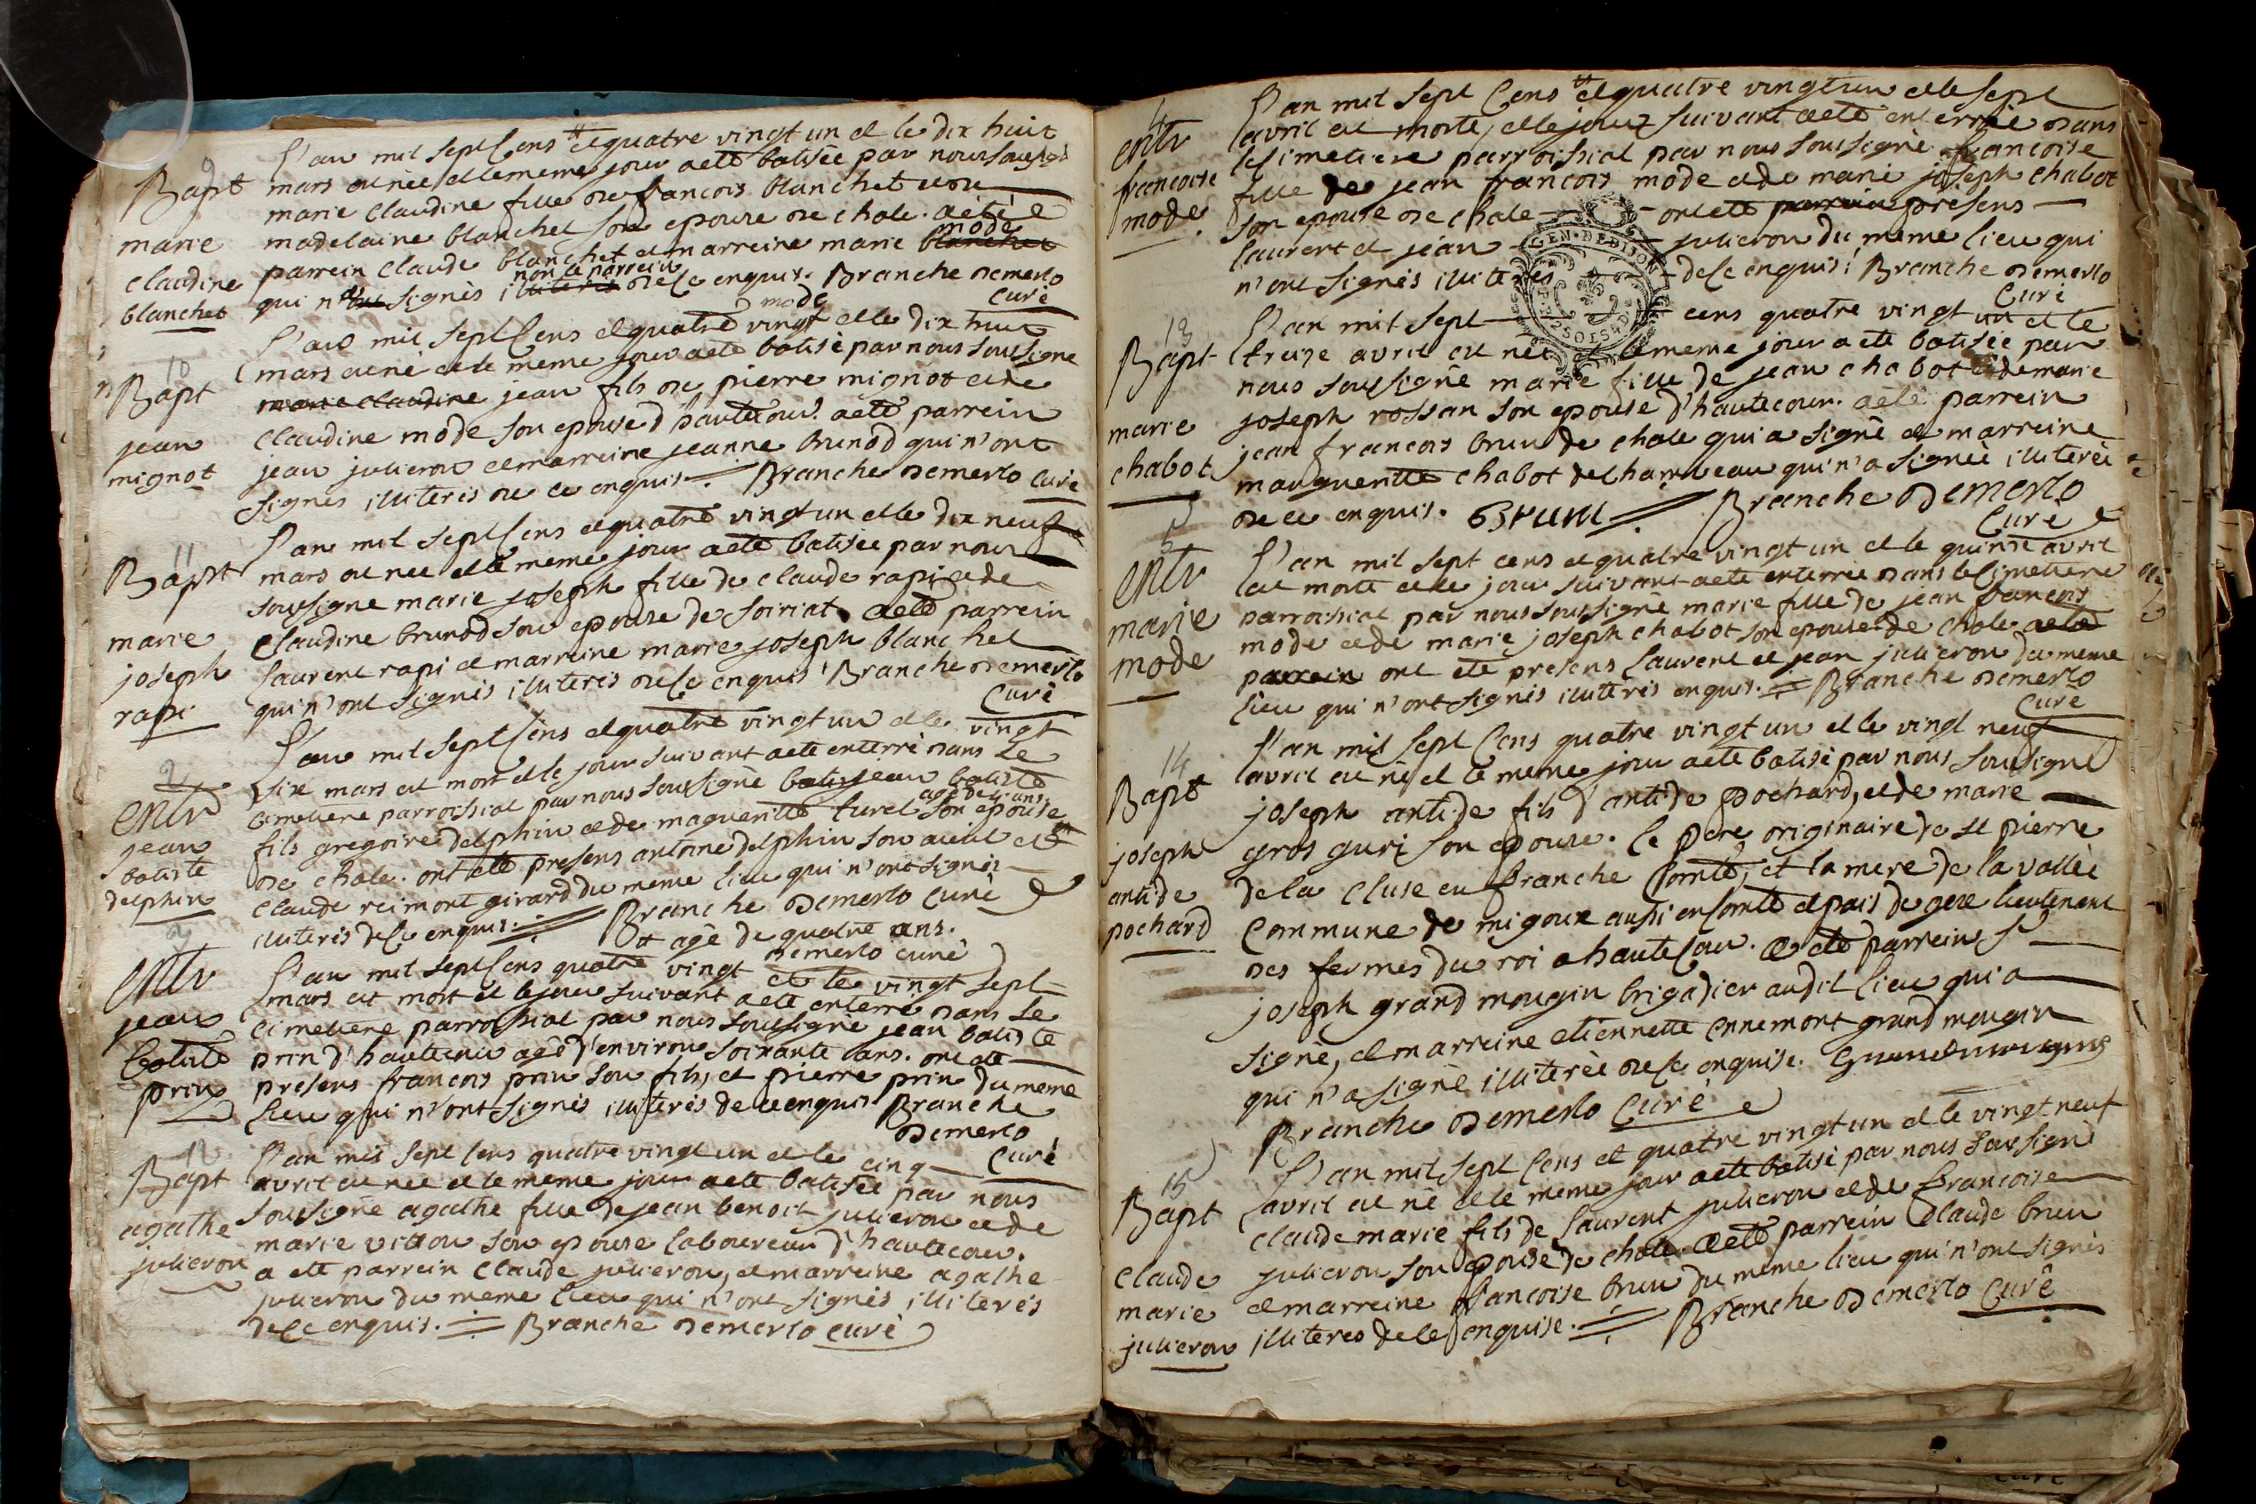 9
Bapt
marie
claudine
blanchet
L'an mil sept cens et quatre vingt un et le dix huit
mars est née et le meme jour a eté batisée par nous soussigné
marie claudine fille de francois blanchet et de
madelaine blanchet son epouse de chole. a eté
parrein claude blanchet et marreine marie blanchet mode
qui n'ont signés illiterés non le parrein de ce enquis. Branche Demerlo
curé
10
Bapt
jean
mignot
L'an mil sept cens et quatre vingt et le dix huit
mars est né et le meme jour a eté batisé par nous soussigné
marie claudine jean fils de pierre mignot et de
claudine mode son epouse d'hautecour. a eté parrein
jean julieron et marreine jeanne brunod qui n'ont
signés illiterés de ce enquis. Branche Demerlo curé
11
Bapt
marie
joseph
rapi
L'an mil sept cens et quatre vingt un et le dix neuf
mars est née et le meme jour a eté batisée par nous
soussigné marie joseph fille de claude rapi et de
claudine brunod son epouse de soiriat. a eté parrein
laurent rapi et marreine marie joseph blanchet
qui n'ont signés illiterés de ce enquis Branche Demerlo
curé
2
entr
jean
batiste
delphin
L'an mil sept cens et quatre vingt un et le vingt
six mars est mort et le jour suivant a eté enterré dans le
cimetiere parroissial par nous soussigné jean batiste
fils gregoire delphin et de margueritte turel son epouse
de chole. ont eté presens antoine delphin son aieul et
claude reimont girard du meme lieu qui n'ont signés
illiterés de ce enquis. Branche Demerlo curé
+ agé de quatre ans.
Demerlo curé
3
entr
jean
batiste
prin
L'an mil sept cens quatre vingt et le vingt sept
mars est mort et le jour suivant a eté enterré dans le
cimetiere parroissial par nous soussigné jean batiste
prin d'hautecour agé d'environ soixante ans. ont eté
presens francois prin son fils, et pierre prin du meme
lieu qui n'ont signés illiterés de ce enquis Branche
Demerlo
curé
12
Bapt
agathe
julieron
L'an mil sept cens quatre vingt un et le cinq
avril est née et le meme jour a eté batisée par nous
soussigné agathe fille de jean benoit julieron et de
marie vitton son epouse laboureur d'hautecour.
a eté parrein claude julieron, et marreine agathe
julieron du meme lieu qui n'ont signés illiterés
de ce enquis. Branche Demerlo curé
4
entr
francoise
mode
L'an mil sept cens et quatre vingt un et le sept
avril est morte, et le jour suivant a eté enterrée dans
le cimetiere parroissial par nous soussigné francoise
fille de jean francois mode et de marie joseph chabot
son epouse de chole ont eté parrein présens
laurent et jean julieron du meme lieu qui
n'ont signés illiterés de ce enquis. Branche Demerlo
curé
GEN. DE DIJON
13
Bapt
marie
chabot
L'an mil sept cens quatre vingt un et le
treize avril est née et le meme jour a eté batisée par
nous soussigné marie fille de jean chabot et de marie
joseph rossan son epouse d'hautecour. a eté parrein
jean francois brun de chole qui a signé et marreine
marguerite chabot de chamveau qui n'a signée illiterée
de ce enquis. Brun Branche Demerlo
curé
5
entr
marie
mode
L'an mil sept cens et quatre vingt un et le quinse avril
est morte et le jour suivant a eté enterrée dans le cimetiere
parroissial par nous soussigné marie fille de jean francois
mode et de marie joseph chabot son epouse de chole a eté
parrein ont eté presens laurent et jean julieron du meme
lieu qui n'ont signés illiterés enquis. Branche Demerlo
curé
14
Bapt
joseph
antide
pochard
L'an mil sept cens quatre vingt un et le vingt neuf
avril est né et le meme jour a eté batisé par nous soussigné
joseph antide fils d'antide pochard, et de marie
gros guri son epouse. le pere originaire de st pierre
de la cluse en franche comté, et la mere de la vallée
commune de migoux aussi en comté et pais de gex lieutenent
des fermes du roi a hautecour. a eté parrein sr
joseph grand mougin brigadier audit lieu qui a
signé, et marreine etiennette ennemont grand mougin
qui n'a signé illiterée de ce enquise. Grandmougin
Branche Demerlo curé
15
Bapt
claude
marie
julieron
L'an mil sept cens et quatre vingt un et le vingt neuf
avril est né et le meme jour a eté batisé par nous soussigné
claude marie fils de laurent julieron et de francoise
julieron son epouse de chole. a eté parrein claude brun
et marreine francoise brun du meme lieu qui n'ont signés
illiterés de ce enquise. Branche Demerlo curé